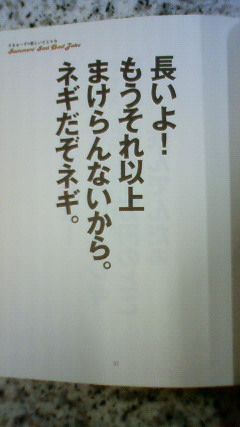 長いよ！
もうそれ以上
まけらんないから。
ネギだぞネギ。